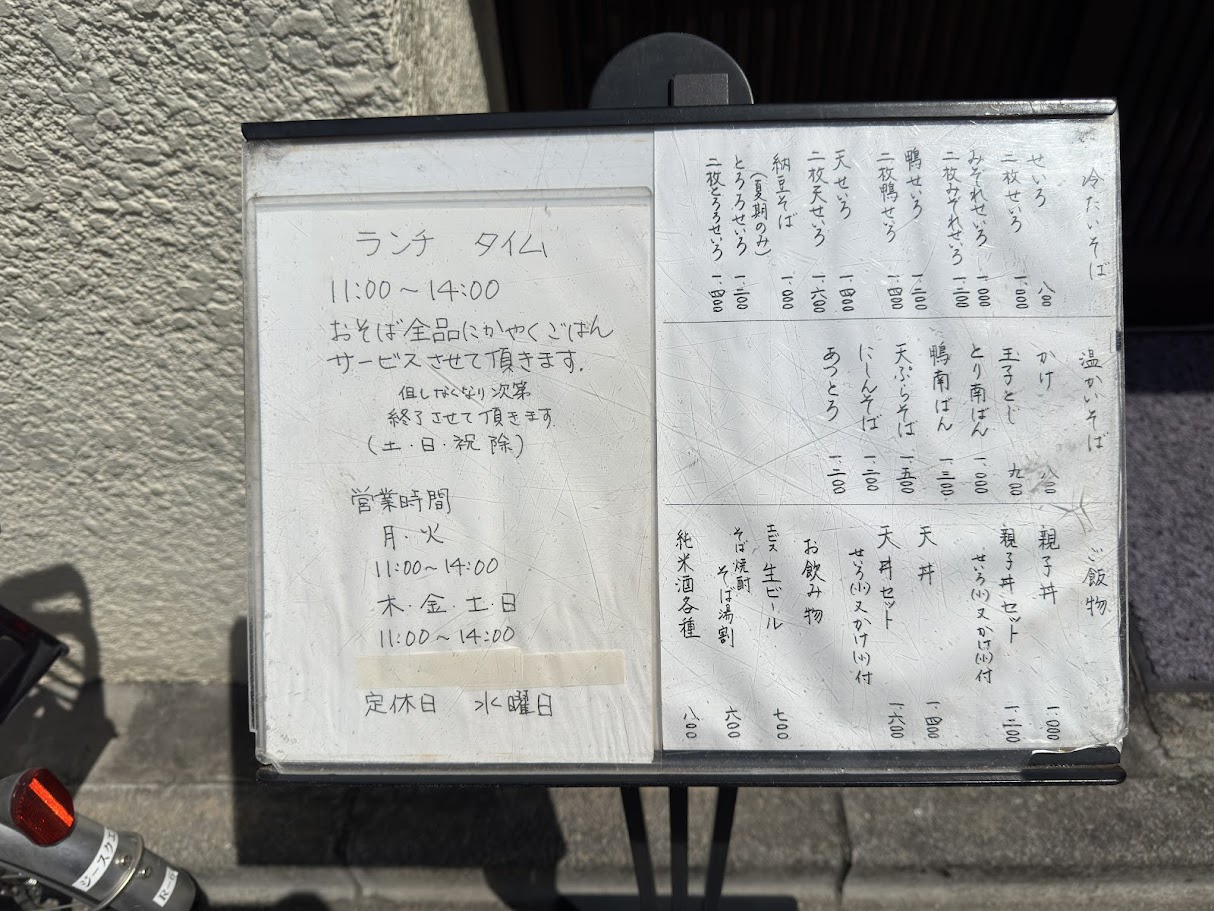 ランチ タイム
11:00～14:00
おそば全品にかやくごはん
サービスさせて頂きます.
但しなくなり次第
終了させて頂きます.
(土・日・祝 除)
営業時間
月・火
11:00～14:00
木・金・土・日
11:00～14:00
定休日 水曜日
冷たいそば
せいろ 八〇〇
二枚せいろ 一.〇〇〇
みぞれせいろ 一.〇〇〇
二枚みぞれせいろ 一.二〇〇
鴨せいろ 一.二〇〇
二枚鴨せいろ 一.四〇〇
天せいろ 一.四〇〇
二枚天せいろ 一.六〇〇
納豆そば 一.〇〇〇
(夏期のみ)
とろろせいろ 一.二〇〇
二枚とろろせいろ 一.四〇〇
温かいそば
かけ 八〇〇
玉子とじ 九〇〇
とり南ばん 一.〇〇〇
鴨南ばん 一.三〇〇
天ぷらそば 一.五〇〇
にしんそば 一.二〇〇
あつとろ 一.二〇〇
ご飯物
親子丼 一.〇〇〇
親子丼セット 一.二〇〇
せいろ(小)又かけ(小)付
天丼 一.四〇〇
天丼セット 一.六〇〇
せいろ(小)又かけ(小)付
お飲み物
エビス生ビール 七〇〇
そば焼酎 そば湯割 六〇〇
純米酒各種 八〇〇
ジースクエ
R-6